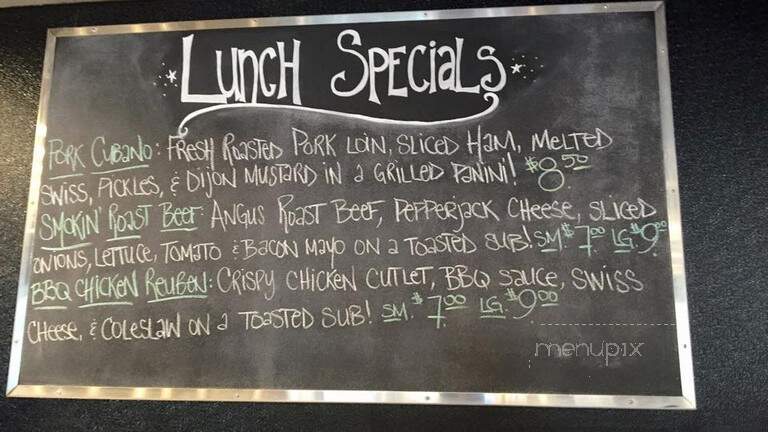 LUNCH SPECIALS
PORK CUBANO: FRESH ROASTED PORK LOIN, SLICED HAM, MELTED
SWISS, PICKLES, & DIJON MUSTARD IN A GRILLED PANINI! $8.50
SMOKIN' ROAST BEEF: ANGUS ROAST BEEF, PEPPERJACK CHEESE, SLICED
ONIONS, LETTUCE, TOMATO & BACON MAYO ON A TOASTED SUB! SM. $7.00 LG. $9.00
BBQ CHICKEN REUBEN: CRISPY CHICKEN CUTLET, BBQ SAUCE, SWISS
CHEESE, & COLESLAW ON A TOASTED SUB! SM. $7.00 LG. $9.00
menupix